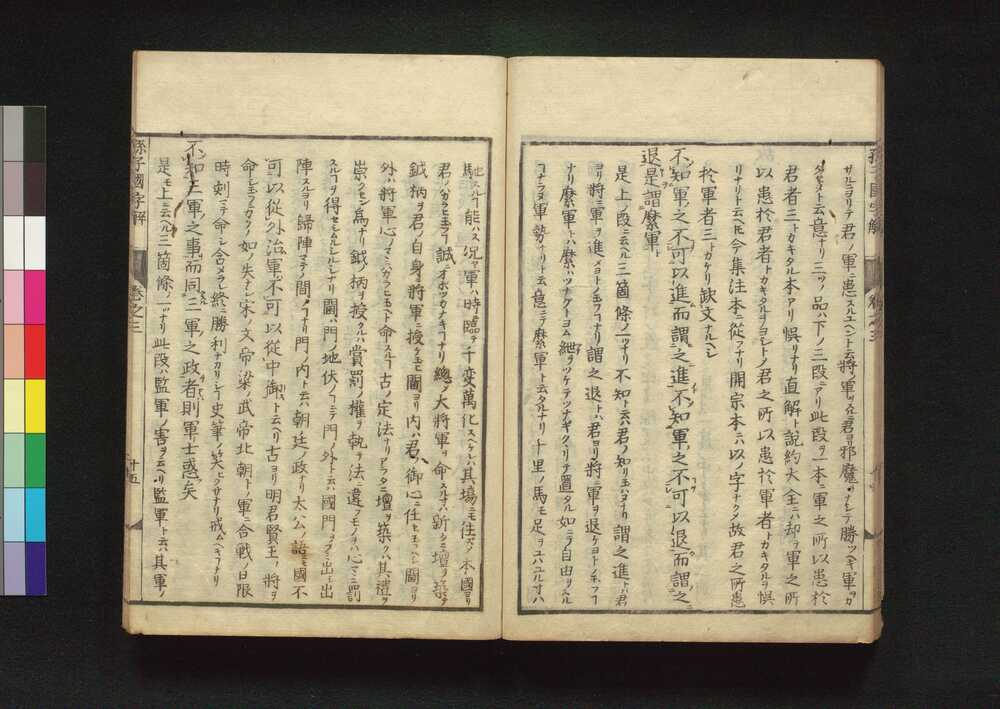 サルニヨリテ君ノ軍ニ患スルユヘント云將軍ノスルヿニ君ヨリ邪魔ヲナシテ勝ツヘキ軍ヲカ
タセヌヿト云意ナリ三ツノ品ハ下ノ三段ニアリ此段ヲ一本ニ軍之所以患於
君者三トカキタル本アリ悞リナリ直解ト説約大全ニハ却テ軍之所
以患於君者トカキタルヲヨシトシ君之所以患於軍者トカキタルヲ悞
リナリト云ヘ𪜈今集注本ニ從フナリ開宗本ニハ以ノ字ナクメ故君之所患
於軍者三トカケリ缺文ナルヘシ
不知軍之不可以進而謂之進不知軍之不可以退而謂之
退是謂縻軍
是上ノ段ニ云ヘル三箇條ノ一ツナリ不知ト云ハ君ノ知リ玉ハヌナリ謂之進トハ君
ヨリ將ニ軍ヲ進メヨトノ玉フナリ謂之退トハ君ヨリ將ニ軍ヲ退ケヨトノ玉フ
ナリ縻軍トハ縻ハツナグトヨム紲ヲツケテツナギクヽリテ置タル如クニテ自由ヲスル
ヿナラヌ軍勢ナリト云意ニテ縻軍ト云タルナリ千里ノ馬モ足ヲユハユルトキハ
馳スルヿ能ハス況ヤ軍ハ時ニ臨テ千變萬化スヘケレハ其場ニモ住ズメ本國ヨリ
君ノハカラヒ玉フヿ誠ニオボツカナキヿナリ總メ大將軍ヲ命スルニハ新タニ壇ヲ築キ
鉞ノ柄ヲ君ノ自身ニ將軍ニ授ケ玉ヒ閫ヨリ内ハ君ノ御心ニ任セ玉フヘシ閫ヨリ
外ハ將軍ノ心ノマヽニハカラヒ玉ヘト命スルヿ古ノ定法ナリ壇ヲ築クハ其禮ヲ
崇クセン爲ナリ鉞ノ柄ヲ授クルハ賞罰ノ權ヲ執テ法ニ違フモノヲハ心マヽニ罰
スルヿヲ得セシムルシルシナリ閫ハ門ノ地伏ノヿニテ門ノ外ト云ハ國門ヲフミ出シ出
陣スルヨリ歸陣マテノ間ノヿナリ門ノ内ト云ハ朝廷ノ政ナリ太公ノ語ニモ國不
可以從外治軍不可以從中御ト云ヘリ古ヨリ明君賢王ノ將ヲ
命シ玉フカクノ如シ宋文帝梁ノ武帝北朝トノ軍ニ合戰ノ日限
時刻マテ命シ含メラレ終ニ勝利ナカリシヿ史筆ノ笑ヒクサナリ戒ムヘキヿナリ
不知三軍之事而同三軍之政者則軍士惑矣
是モ上ニ云ヘル三箇條ノ一ツナリ此段ハ監軍ノ害ヲ云ヘリ監軍ト云ハ其軍ノ
孫子國字解
卷之三
十五